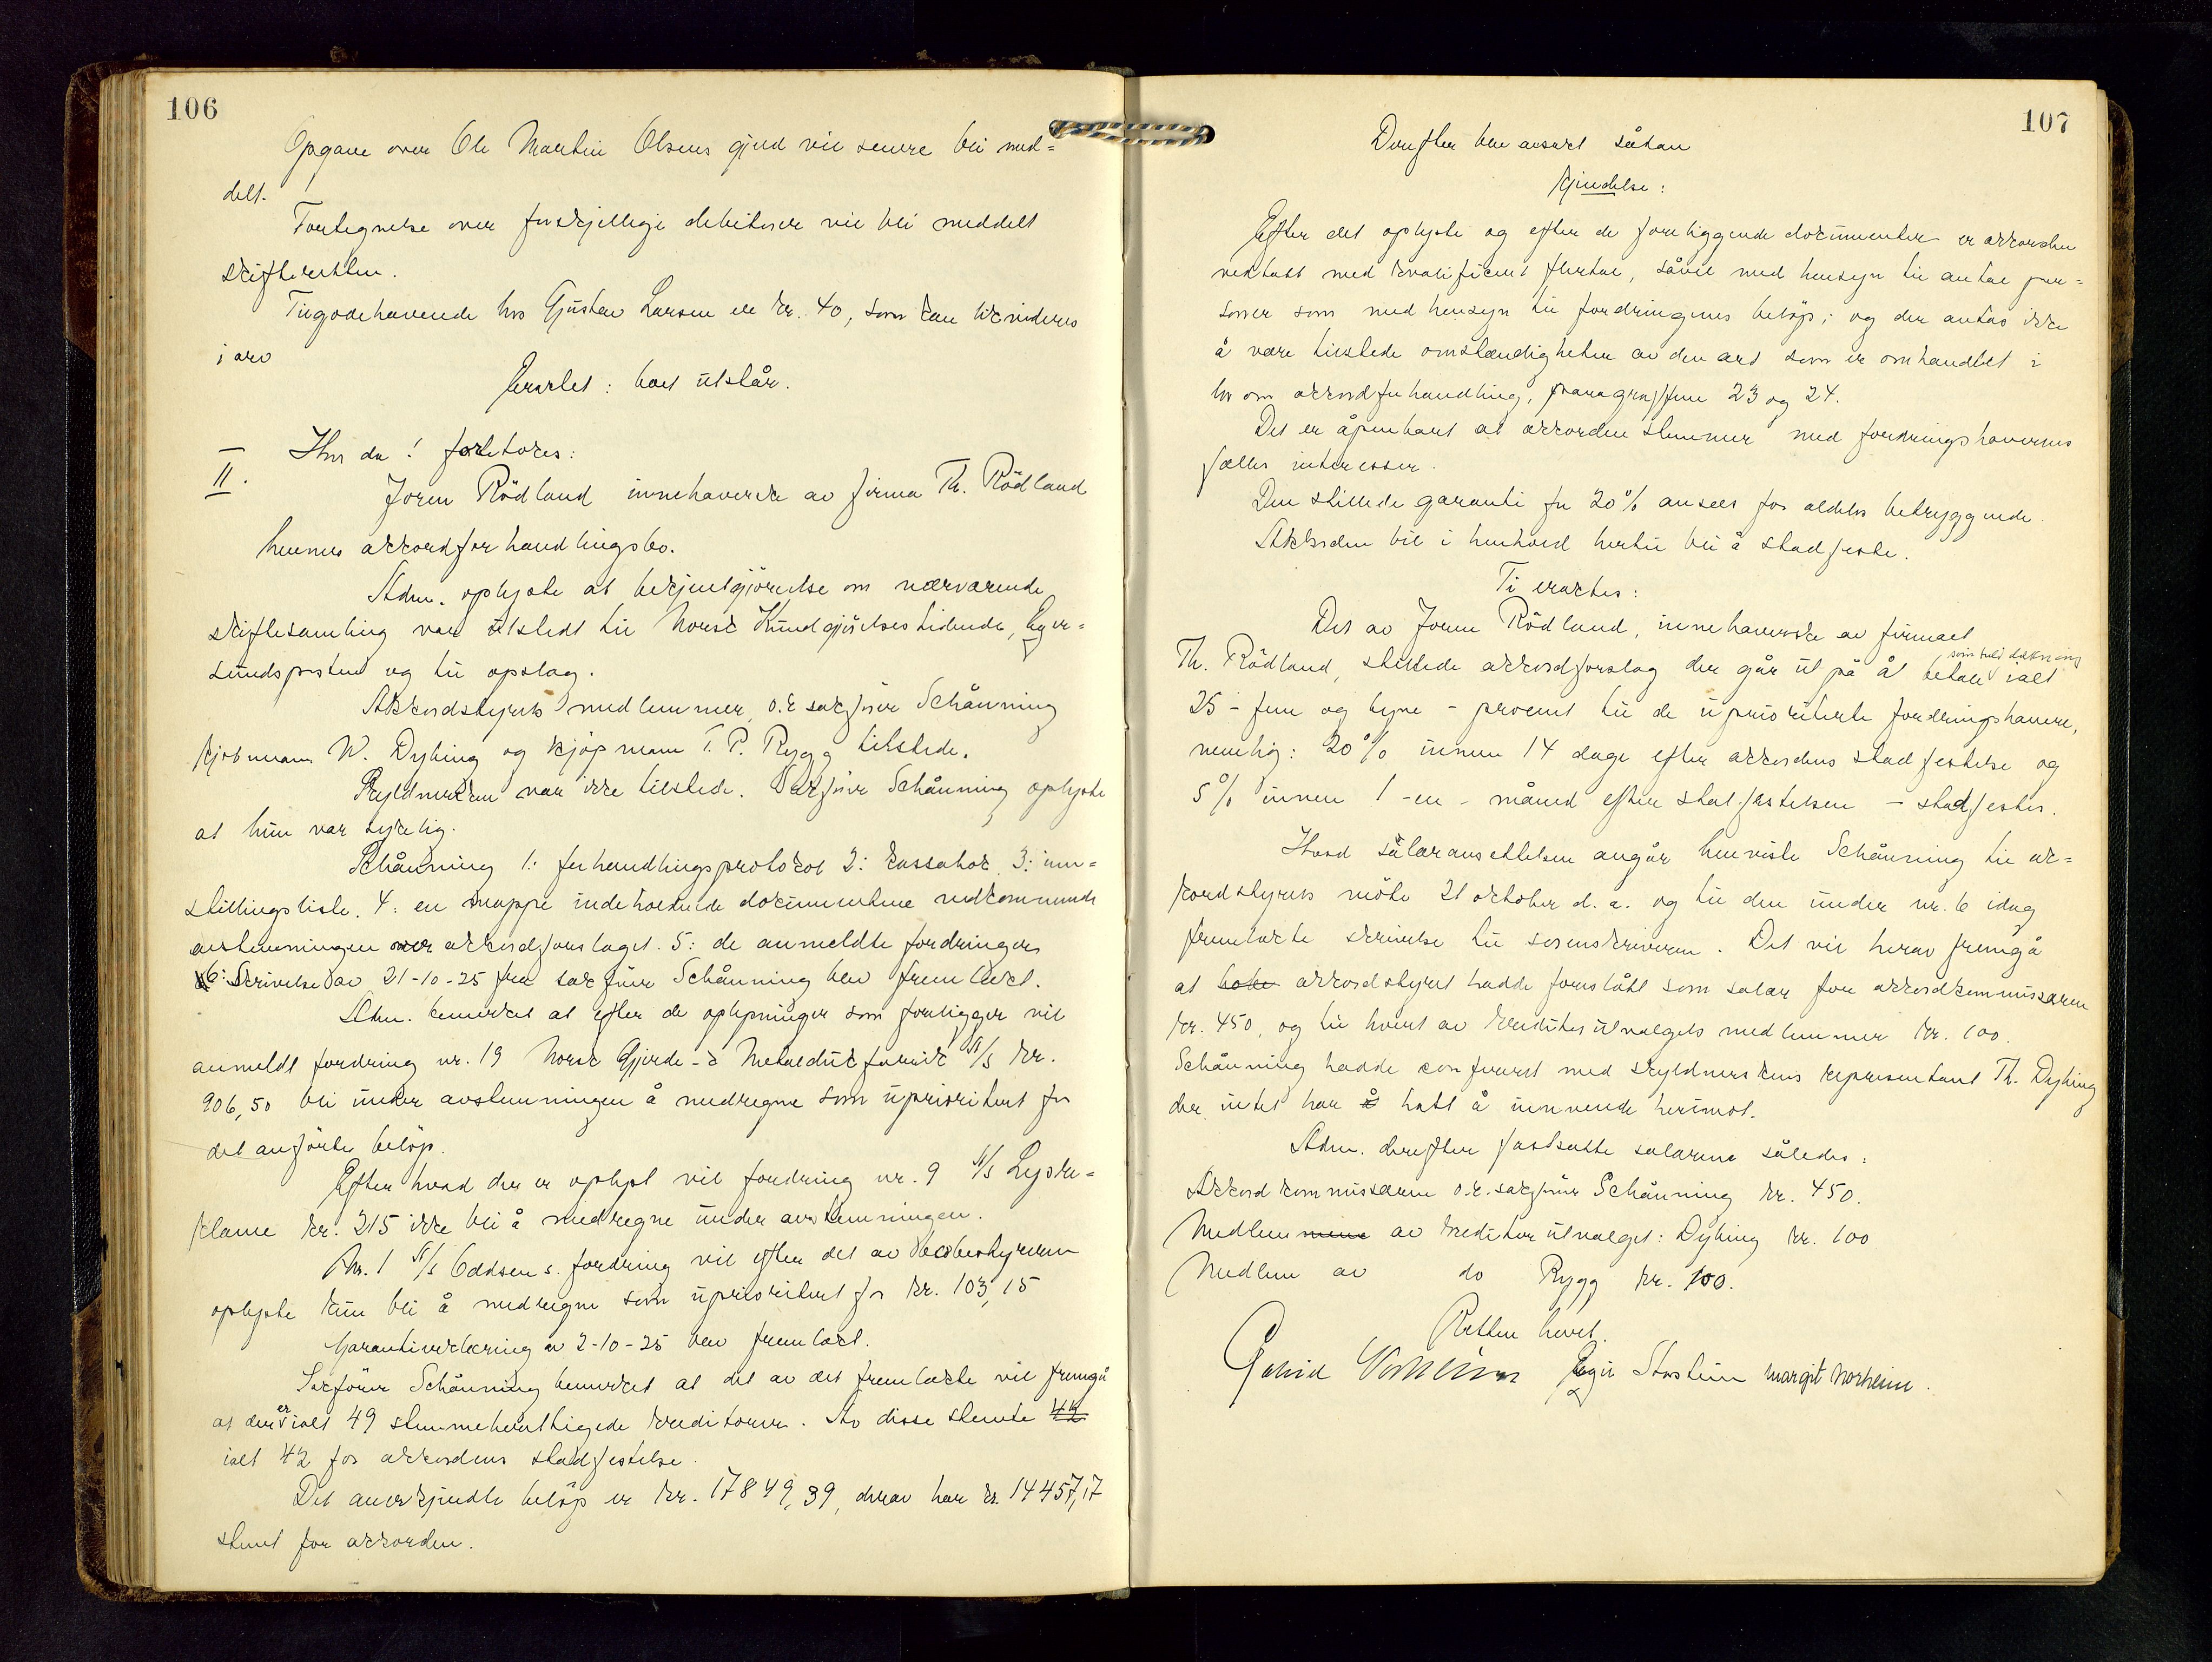 106
Opgave over Ole Martin Olsens gjeld vil senere bli med-
delt.
Fortegnelse over forskjellige debitorer vil bli meddelt
skifteretten.
Tilgodehavende hos Gustav Larsen er kr. 40, som kan likvideres
i arv
Erartet: boet utstår.
II. Hvor da! foretokes:
Joren Rödland innehaverske av firma Th. Rödland
hennes akkordforhandlingsbo.
Adm. oplyste at bekjentgjörelse om nærværende
skiftesamling var utstedt til Norsk Kundgjörelsestidende, Eger-
sundsposten og til opslag.
Akkordstyrets medlemmer, o.r. sakförer Schånning
kjöbmann W. Dybing og kjöpmann T. P. Rygg tilstede.
Skyldnersken var ikke tilstede. Sakförer Schånning oplyste
at hun var sykelig.
Schånning 1: forhandlingsprotokol 2: kassabok. 3: inn-
stillingsliste. 4: en mappe indeholdende dokumentene vedkommende
avstemningen over akkordforslaget. 5: de anmeldte fordringer
6: Skrivelse av 21-10-25 fra sakförer Schånning blev fremlakt.
Adm. bemerket at efter de oplysninger som foreligger vil
anmeldt fordring nr. 19 Norsk Gjerde- & Metaldukfabrik A/S kr.
906,50 bli under avstemningen å medregne som uprioritert for
det anförte belöp.
Efter hvad der er oplyst vil fordring nr. 9 A/S Lysre-
klame kr. 215 ikke bli å medregne under avstemningen.
Nr. 1 A/S Oddsens. fordring vil efter det av bobestyreren
oplyste kun bli å medregne som uprioritert for kr. 103,15
Garantierklæring av 2-10-25 blev fremlakt.
Sakförer Schånning bemerket at det av det fremlakte vil fremgå
at der er ialt 49 stemmeberettigede kreditorer. Av disse stemte 42
ialt 42 for akkordens stadfestelse.
Det anerkjendte belöp er kr. 17849,39, derav har kr. 14457,17
stemt for akkorden.
107
Derefter blev avsakt sådan
Kjendelse:
Efter det oplyste og efter de foreliggende dokumenter er akkorden
vedtatt med kvalificert flertal, såvel med hensyn til antal per-
soner som med hensyn til fordringenes belöp; og der antas ikke
å være tilstede omstændigheter av den art som er omhandlet i
lov om akkordforhandling, paragraffene 23 og 24.
Det er åpenbart at akkorden stemmer med fordringshavernes
fælles interesser.
Den stillede garanti for 20% ansees for aldeles betryggende.
Akkorden vil i henhold hertil bli å stadfeste.
Ti eraktes:
Det av Joren Rödland, innehaverske av firmaet
Th. Rödland, stillede akkordforslag der går ut på at betale som fuld dekning ialt
25 - fem og tyve - procent til de uprioriterte fordringshavere,
nemlig: 20% innen 14 dage efter akkordens stadfestelse og
5% innen 1 -en- måned efter stadfestelsen - stadfestes.
Hvad salæransettelsen angår henviste Schånning til ak-
kordstyrets möte 21 oktober d. a. og til den under nr. 6 idag
fremlakte skrivelse til sorenskriveren. Det vil herav fremgå
at akkordstyret hadde foreslått som salær for akkordkommissæren
kr. 450, og til hvert av kreditorutvalgets medlemmer kr. 100.
Schånning hadde conferert med skyldnerskens representant Th. Dybing
der intet har hatt å innvende herimot.
Adm. derefter fastsatte salærene således:
Akkordkommissæren o.r. sakförer Schånning kr. 450.
Medlemmene av kreditorutvalget: Dybing kr. 100
Medlem av do Rygg kr. 100.
Retten hevet.
Egil Storstein Margit Norheim.